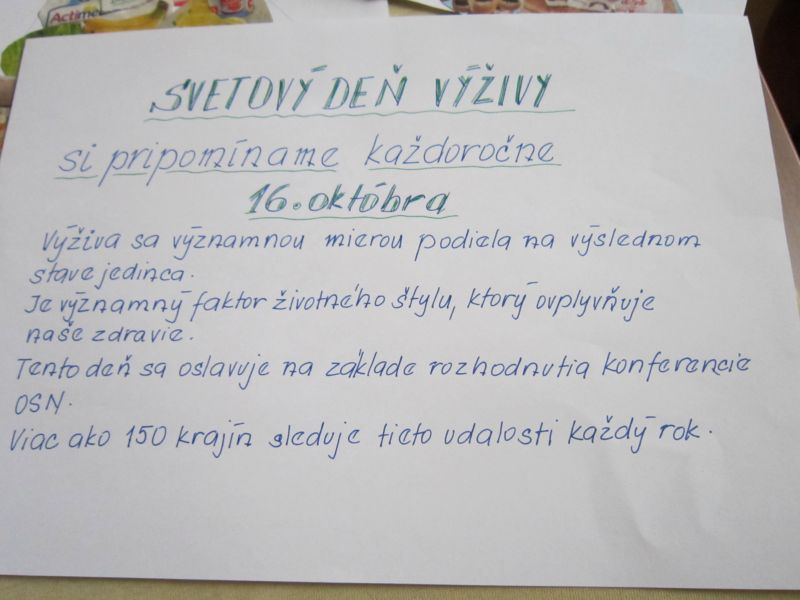 Actimel
SVETOVÝ DEŇ VÝŽIVY
si pripomíname každoročne
16. októbra
Výživa sa významnou mierou podiela na výslednom
stave jedinca.
Je významný faktor životného štylu, ktorý ovplyvňuje
naše zdravie.
Tento deň sa oslavuje na základe rozhodnutia konferencie
OSN.
Viac ako 150 krajín sleduje tieto udalosti každý rok.